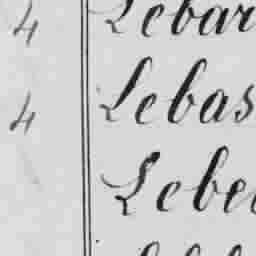 4 Lebar
4 Lebas
Lebe